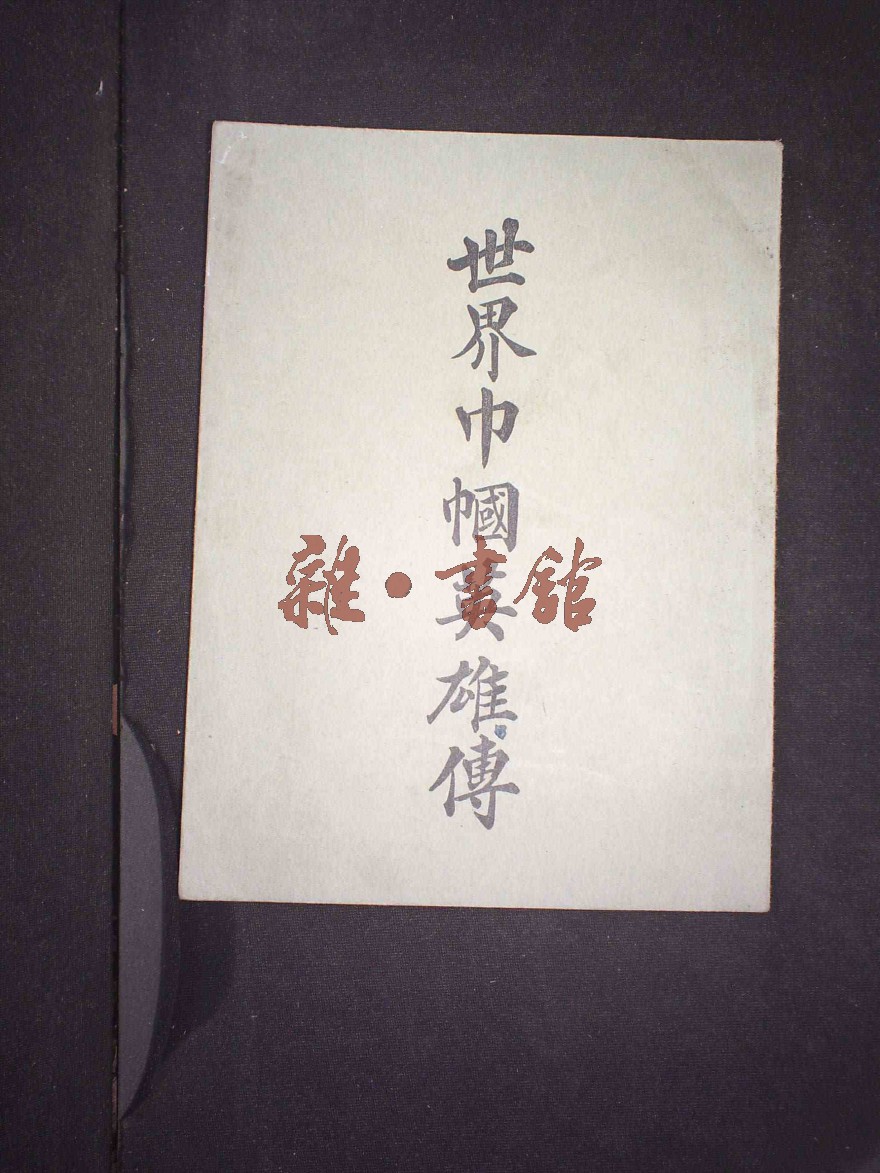 世界巾幗英雄傳
雜·書館